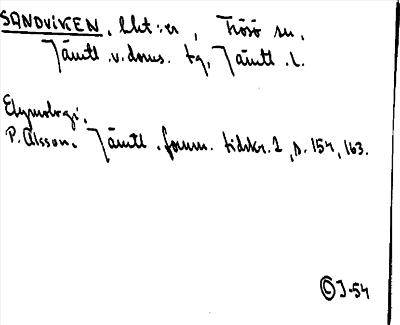 SANDVIKEN, lht:er, Frösö sn,
Jämtl.v.doms. tg, Jämtl.l.
Etymologi.
P.Olsson. Jämtl.fornm. tidskr.2, s.154, 163.
© J-54